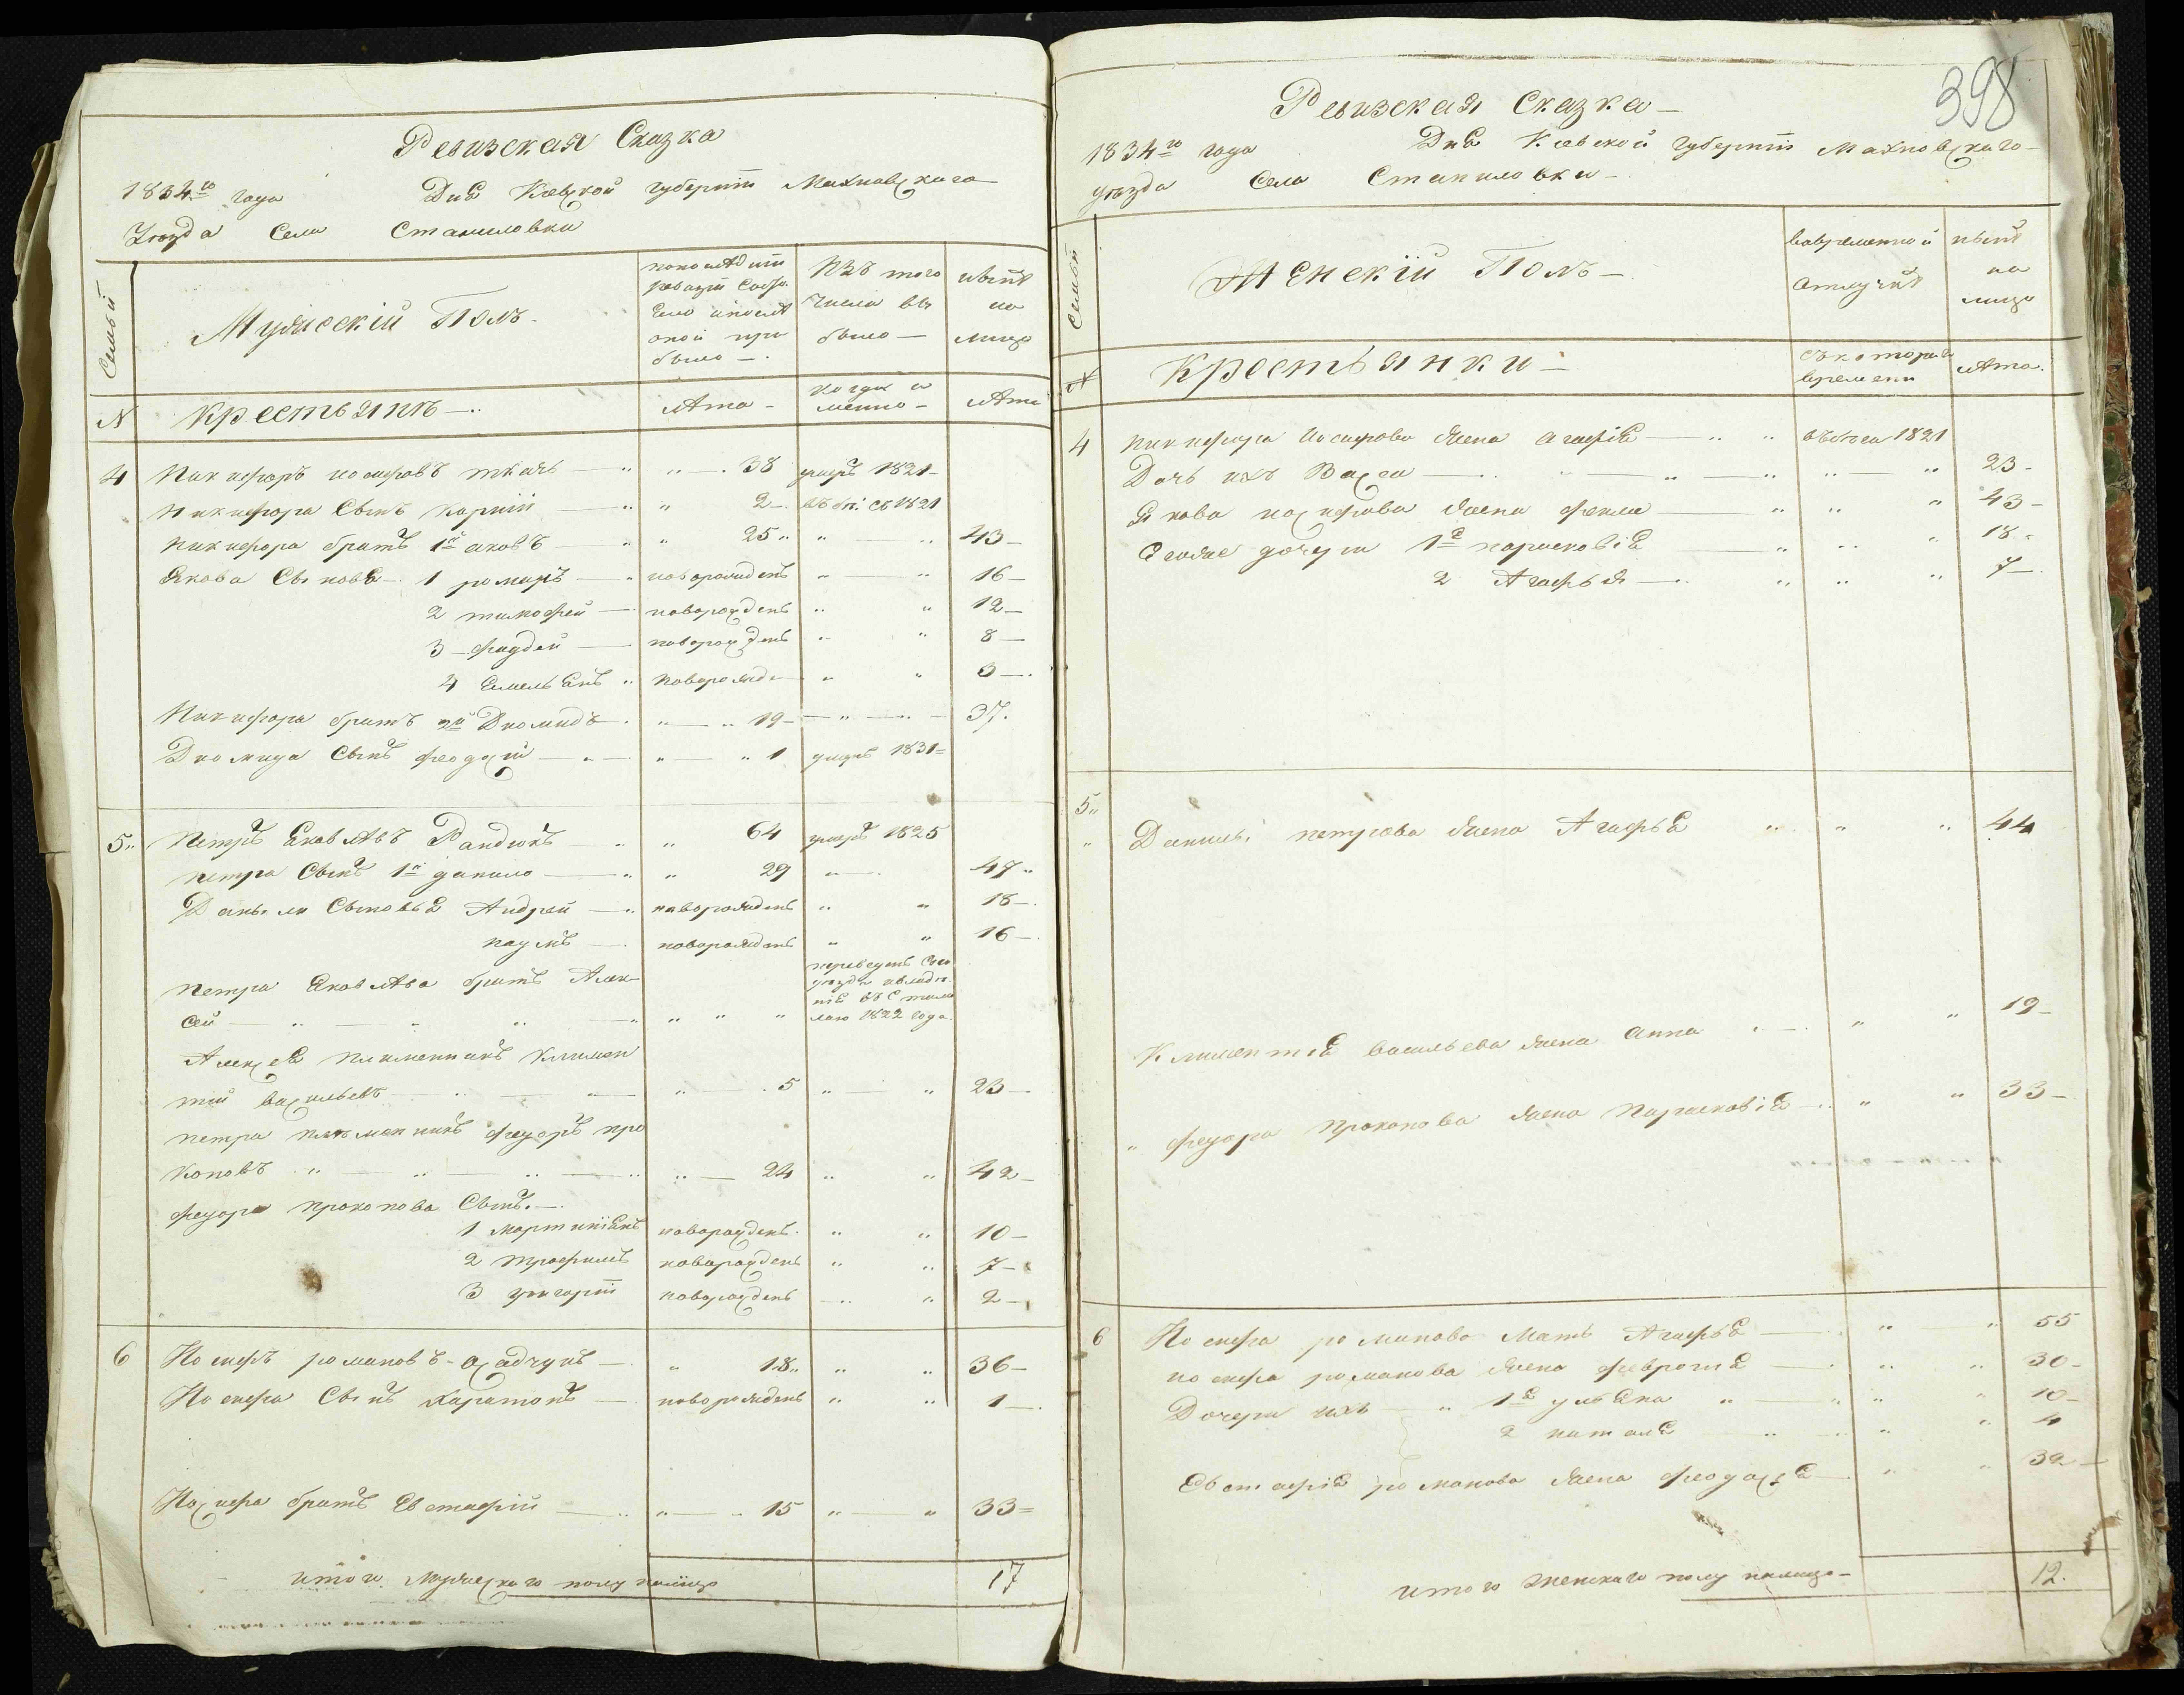 Ревизская Сказка
1834го года Дня Киевской губернии Махновскаго
Уезда Села Станиловки
Семьи
Мужескій Полъ
Изъ того
числа вы
было
ныне
на
лицо
N
Крестьяне
Лета
когда и
менно
Лета
4
Никифоръ иосифовъ ткачь 38 умеръ 1821
Никифора Сынъ карпій 2 1821
Никифора братъ 1й аковъ 25 43
Якова Сыновья 1 романъ новорожденъ 16
2 тимофей новорожденъ 12
3 фаддей новорожденъ 8
4 Емельянъ новорожде 3
Никифора братъ 2й Диомидъ 19 37
Диомида Сынъ феодосій 1 умеръ 1831
5
Петръ Яковлевъ Рандюкъ 64 умеръ 1825
петра Сынъ 1й данило 29 47
Данила Сыновья Андрей новорожденъ 18
наумъ новорожденъ 16
Петра Яковлева братъ Алек
сей
переведенъ
1822 года
Алексея племенникъ климен
тій васильевъ 5 23
петра племенникъ федоръ про
коповъ 24 42
федора прокопова Сынъ
1 мартиніянъ новорожденъ 10
2 трофимъ новорожденъ 7
3 григорій новорожденъ 2
6
Иосифъ романовъ осадчукъ 18 36
Иосифа Сынъ харитонъ новорожденъ 1
Иосифа братъ Евстафій 15 33
итого мужескаго полу налицо 17
398
Ревизская Сказка
1834го года Дня Киевской губерніи Махновскаго
уезда Села Станиловки
Семьи
Женскій Полъ
вовременной
отлучке
ныне
на
лицо
N
Крестьянки
съкоторого
времени
Лета
4
никифора иосифова жена агафія 1821
Дочь ихъ Васса 23
Якова иосифова жена фекла 43
Егоже дочери 1я парасковія 18
2 Агафья 7
5
Данилы петрова жена Агафья 44
Климентія васильева жена Анна 19
федора прокопова жена Парасковія 33
6
Иосифа романова Мать Агафья 55
иосифа романова жена феврония 30
Дочери ихъ 1я ульяна 10
2 наталя 4
Евстафія романова жена феодосья 32
итого женскаго полу налицо 12